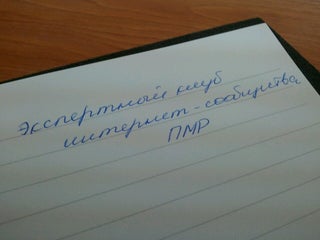 экспертный клуб
интернет-сообщества
ПМР